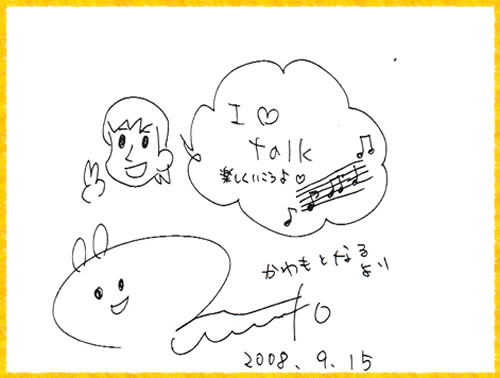 I ♡
talk
楽しくいこうよ♡
かわもとなる
より
2008.9.15